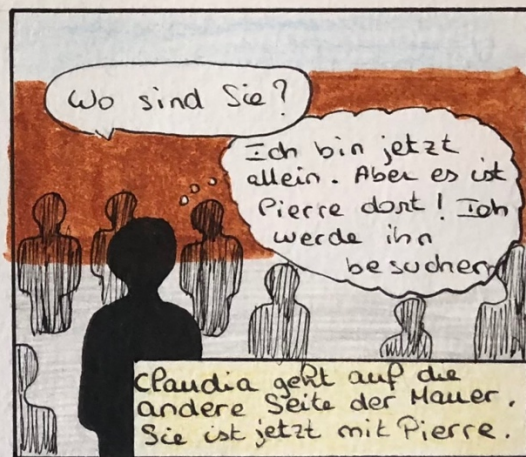 Wo sind Sie?
Ich bin jetzt
allein. Aber es ist
Pierre dort! Ich
werde ihn
besuchen
Claudia geht auf die
andere Seite der Mauer.
Sie ist jetzt mit Pierre.